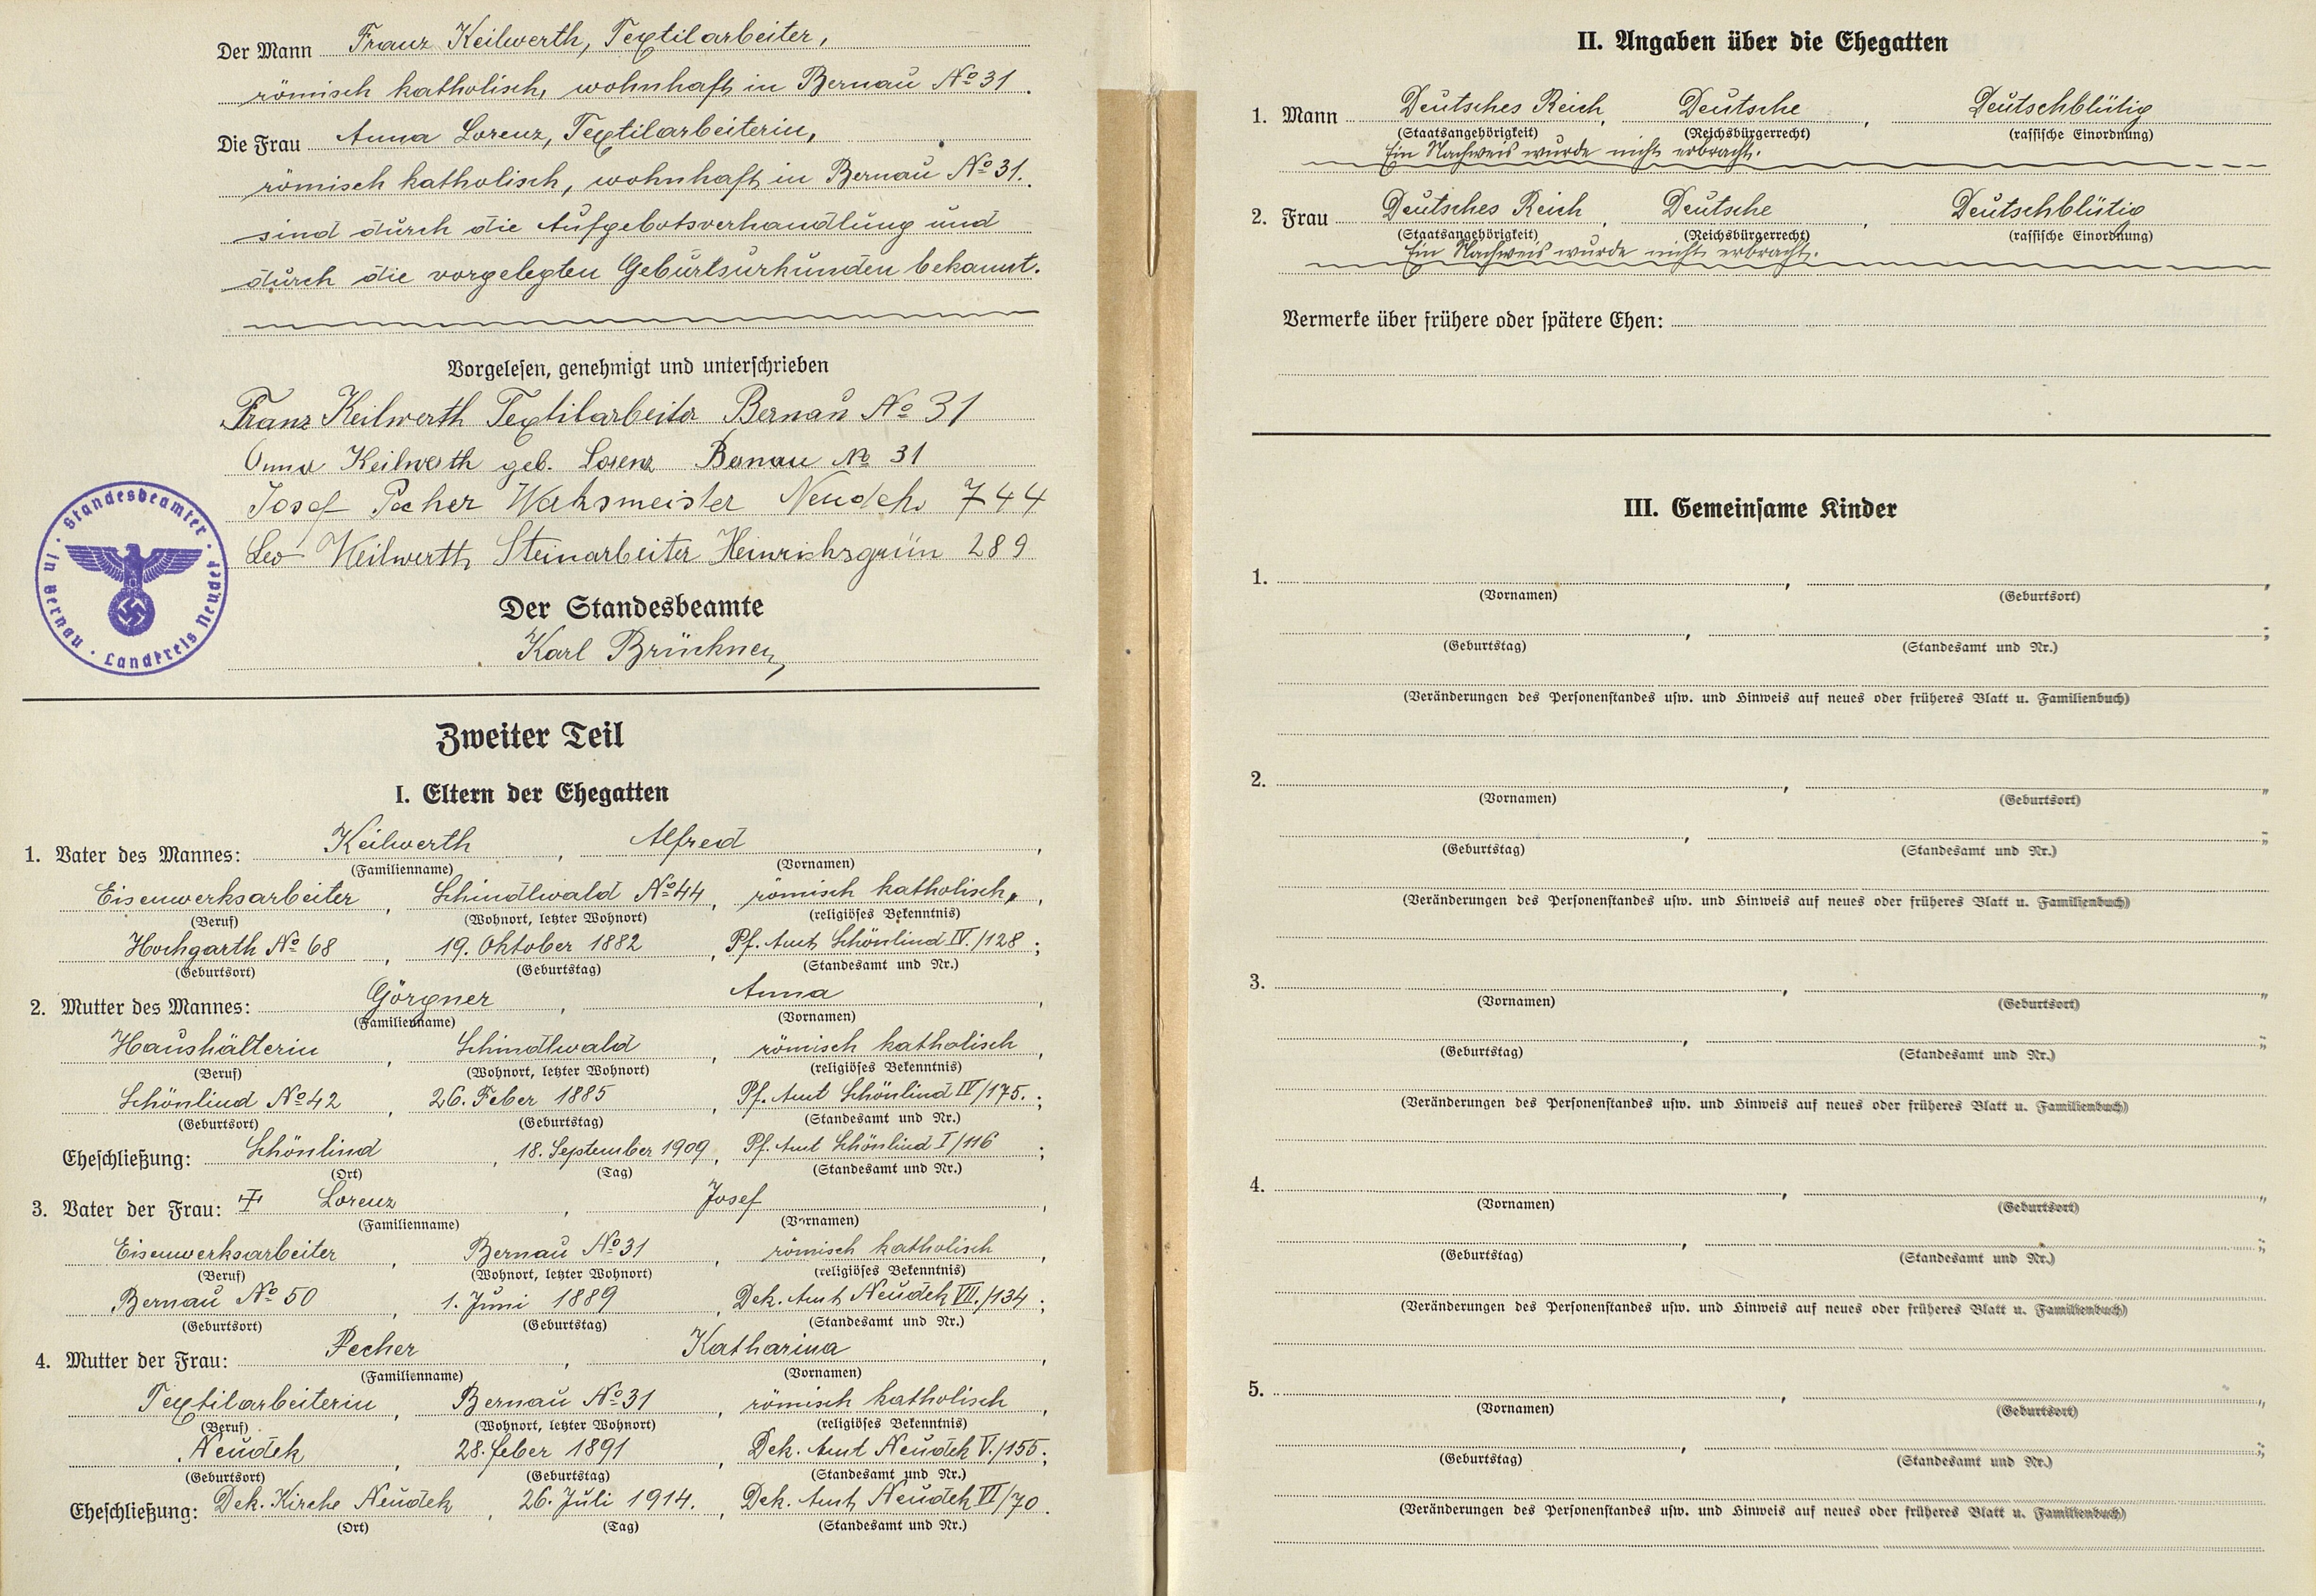 Der Mann Franz Keilwerth, Textilarbeiter,
römisch katholisch, wohnhaft in Bernau No 31.
Die Frau Anna Lorenz, Textilarbeiterin,
römisch katholisch, wohnhaft in Bernau No 31.
sind durch die Aufgebotsverhandlung und
durch die vorgelegten Geburtsurkunden bekannt.
Vorgelesen, genehmigt und unterschrieben
Franz Keilwerth Textilarbeiter Bernau No 31
Anna Keilwerth geb. Lorenz Bernau No 31
Josef Pecher Werksmeister Neudek 744
Leo Keilwerth Steinarbeiter Heinrichsgrün 289
Standesbeamter · in Bernau · Landkreis Neudek ·
Der Standesbeamte
Karl Brückner
Zweiter Teil
I. Eltern der Ehegatten
1. Vater des Mannes: Keilwerth, Alfred,
(Familienname) (Vornamen)
Eisenwerksarbeiter, Schindlwald No 44, römisch katholisch,
(Beruf) (Wohnort, letzter Wohnort) (religiöses Bekenntnis)
Hochgarth No 68, 19. Oktober 1882, Pf. Amt Schönlind IV./128;
(Geburtsort) (Geburtstag) (Standesamt und Nr.)
2. Mutter des Mannes: Görgner, Anna,
(Familienname) (Vornamen)
Haushälterin, Schindlwald, römisch katholisch,
(Beruf) (Wohnort, letzter Wohnort) (religiöses Bekenntnis)
Schönlind No 42, 26. Feber 1885, Pf. Amt Schönlind IV/175.;
(Geburtsort) (Geburtstag) (Standesamt und Nr.)
Eheschließung: Schönlind, 18. September 1909, Pf. Amt Schönlind I/116;
(Ort) (Tag) (Standesamt und Nr.)
3. Vater der Frau: † Lorenz, Josef,
(Familienname) (Vornamen)
Eisenwerksarbeiter, Bernau No 31, römisch katholisch,
(Beruf) (Wohnort, letzter Wohnort) (religiöses Bekenntnis)
Bernau No 50, 1. Juni 1889, Dek. Amt Neudek VII./134;
(Geburtsort) (Geburtstag) (Standesamt und Nr.)
4. Mutter der Frau: Pecher, Katharina,
(Familienname) (Vornamen)
Textilarbeiterin, Bernau No 31, römisch katholisch,
(Beruf) (Wohnort, letzter Wohnort) (religiöses Bekenntnis)
Neudek, 28. feber 1891, Dek. Amt Neudek V./155;
(Geburtsort) (Geburtstag) (Standesamt und Nr.)
Eheschließung: Dek. Kirche Neudek, 26. Juli 1914., Dek. Amt Neudek VI/70.
(Ort) (Tag) (Standesamt und Nr.)
II. Angaben über die Ehegatten
1. Mann Deutsches Reich, Deutsche, Deutschblütig
(Staatsangehörigkeit) (Reichsbürgerrecht) (rassische Einordnung)
Ein Nachweis wurde nicht erbracht.
2. Frau Deutsches Reich, Deutsche, Deutschblütig
(Staatsangehörigkeit) (Reichsbürgerrecht) (rassische Einordnung)
Ein Nachweis wurde nicht erbracht.
Vermerke über frühere oder spätere Ehen:
III. Gemeinsame Kinder
1. , ,
(Vornamen) (Geburtsort)
, ;
(Geburtstag) (Standesamt und Nr.)
(Veränderungen des Personenstandes usw. und Hinweis auf neues oder früheres Blatt u. Familienbuch)
2. , ,
(Vornamen) (Geburtsort)
, ;
(Geburtstag) (Standesamt und Nr.)
(Veränderungen des Personenstandes usw. und Hinweis auf neues oder früheres Blatt u. Familienbuch)
3. , ,
(Vornamen) (Geburtsort)
, ;
(Geburtstag) (Standesamt und Nr.)
(Veränderungen des Personenstandes usw. und Hinweis auf neues oder früheres Blatt u. Familienbuch)
4. , ,
(Vornamen) (Geburtsort)
, ;
(Geburtstag) (Standesamt und Nr.)
(Veränderungen des Personenstandes usw. und Hinweis auf neues oder früheres Blatt u. Familienbuch)
5. , ,
(Vornamen) (Geburtsort)
, ;
(Geburtstag) (Standesamt und Nr.)
(Veränderungen des Personenstandes usw. und Hinweis auf neues oder früheres Blatt u. Familienbuch)